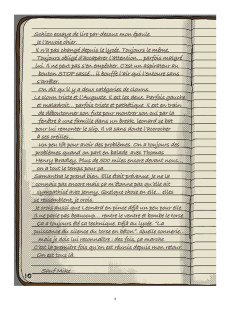 Sohizo essaye de lire par-dessus mon épaule.
je l'envoie chier.
Il n'a pas changé depuis le lycée. Toujours le même.
Toujours obligé d'accaparer l'attention... parfois malgré
lui. Il ne peut pas s'en empêcher. C'est un aspirateur au
bouton STOP cassé... il bouffe l'air qui l'entoure sans
s'arrêter.
On dit qu'il y a deux catégories de clowns.
Le clown triste et l'Auguste. Il est les deux. Parfois gauche
et maladroit... parfois triste et pathétique. Il est en train
de déboutonner son fute pour montrer son cul par la
fenêtre à une famille dans un break. Léonard se bat
pour lui remonter le slip. Il va sans doute l'accrocher
à ses oreilles.
Un peu tôt pour avoir des problèmes. On a toujours des
problèmes quand on part en balade avec Thomas
Henry Bradley. Plus de 500 miles encore devant nous...
on a tout le temps pour ça.
Samantha le prend bien. Elle était prévenue. Je ne la
connais pas encore mais ça m'étonne pas qu'elle ait
sympathisé avec Jenny. Quelque chose en elle... elles
se ressemblent, je crois.
Je crois aussi que Léonard en pince déjà un peu pour elle.
Il ne parle pas beaucoup... rentre le ventre et bombe le torse.
Ça a toujours été sa technique. Déjà au lycée. "La
puissance du silence du torse en béton". Quelle connerie.
mais je dois lui reconnaître : des fois, ça marche.
C'est la première fois qu'on est réunis depuis mon retour.
On est tous là.
Sauf Mike.
10